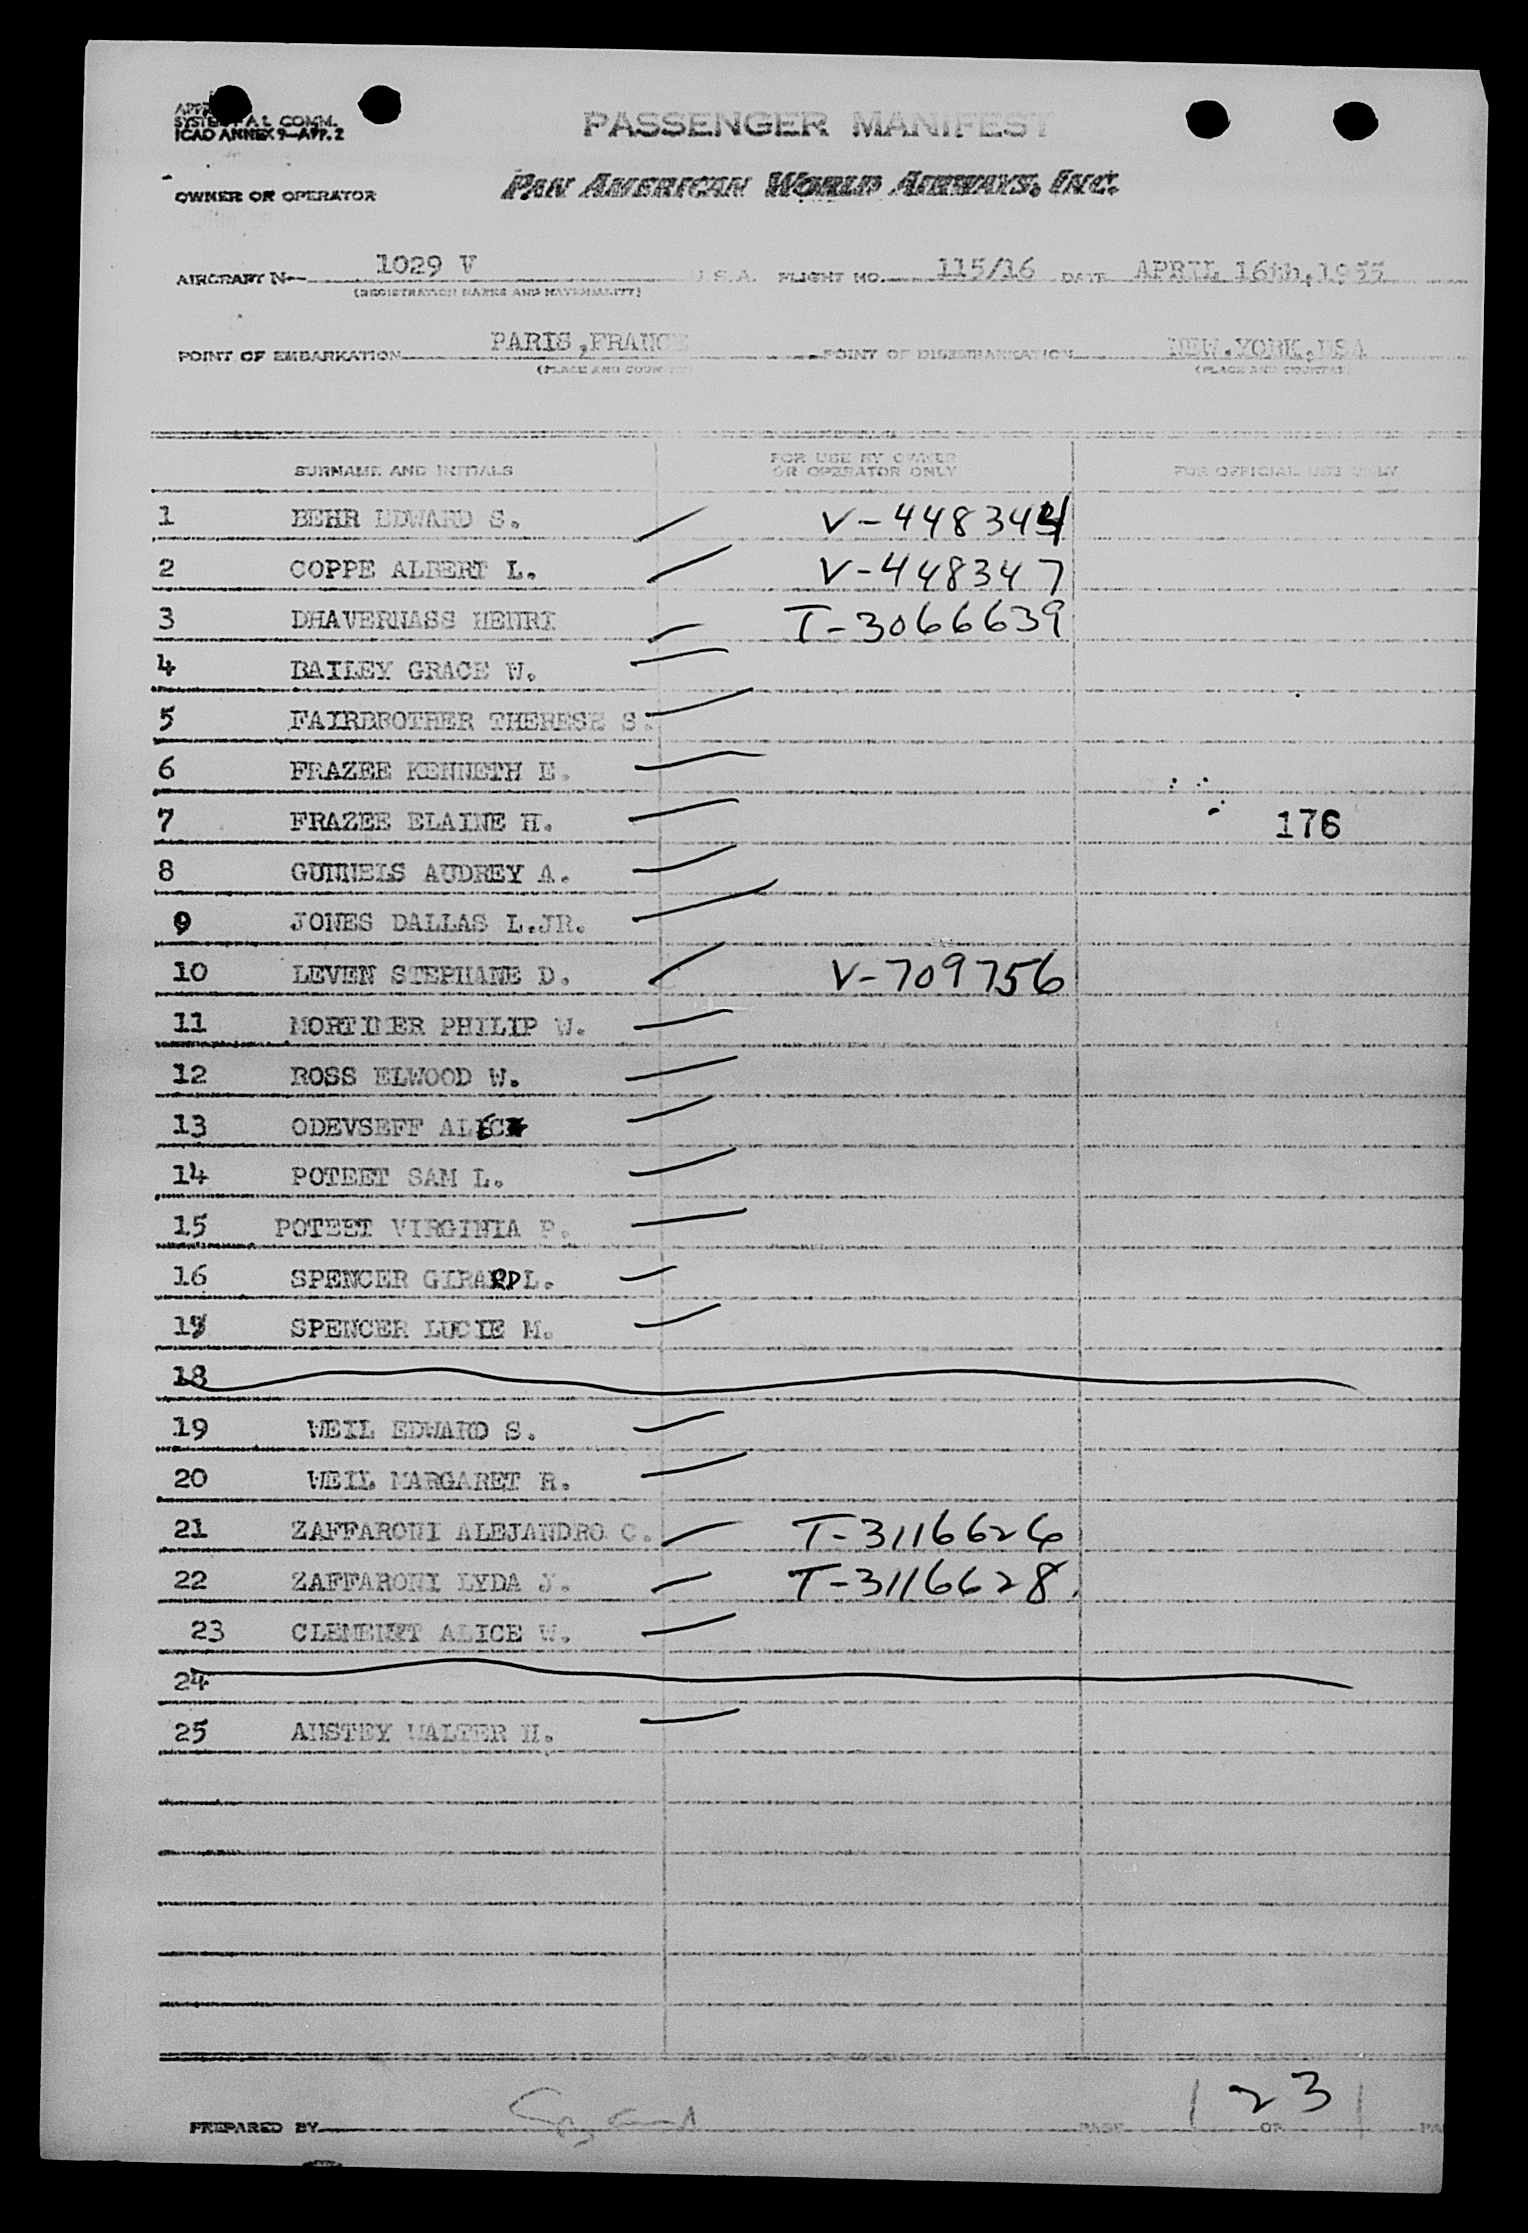 SYSTE AL COMM.
ICAO ANNEX 9—APP. 2
PASSENGER MANIFEST
OWNER OR OPERATOR PAN AMERICAN WORLD AIRWAYS, INC.
AIRCRAFT N— 1029 V U.S.A. FLIGHT NO. 115/16 DATE APRIL 16th, 1955
(REGISTRATION MARKS AND NATIONALITY)
POINT OF EMBARKATION PARIS, FRANCE POINT OF DISEMBARKATION NEW.YORK, USA
(PLACE AND COUNTRY) (PLACE AND COUNTRY)
SURNAME AND INITIALS FOR USE BY OWNER OR OPERATOR ONLY FOR OFFICIAL USE ONLY
1 BEHR EDWARD S. V-448344
2 COPPE ALBERT L. V-448347
3 DHAVERNASS HENRI T-3066639
4 BAILEY GRACE W.
5 FAIRBROTHER THERESE S.
6 FRAZEE KENNETH E.
7 FRAZEE ELAINE H. 176
8 GUNNELS AUDREY A.
9 JONES DALLAS L.JR.
10 LEVEN STEPHANE D. V-709756
11 MORTIMER PHILIP W.
12 ROSS ELWOOD W.
13 ODEVSEFF
14 POTEET SAM L.
15 POTEET VIRGINIA P.
16 SPENCER GIRARD L.
17 SPENCER LUCIE M.
18
19 WEIL EDWARD S.
20 WEIL MARGARET R.
21 ZAFFARONI ALEJANDRO C. T-3116626
22 ZAFFARONI LYDA J. T-3116628
23 CLEMENT ALICE W.
24
25 ANSTEY WALTER H.
23
PREPARED BY PAGE 1 OF 1 PA